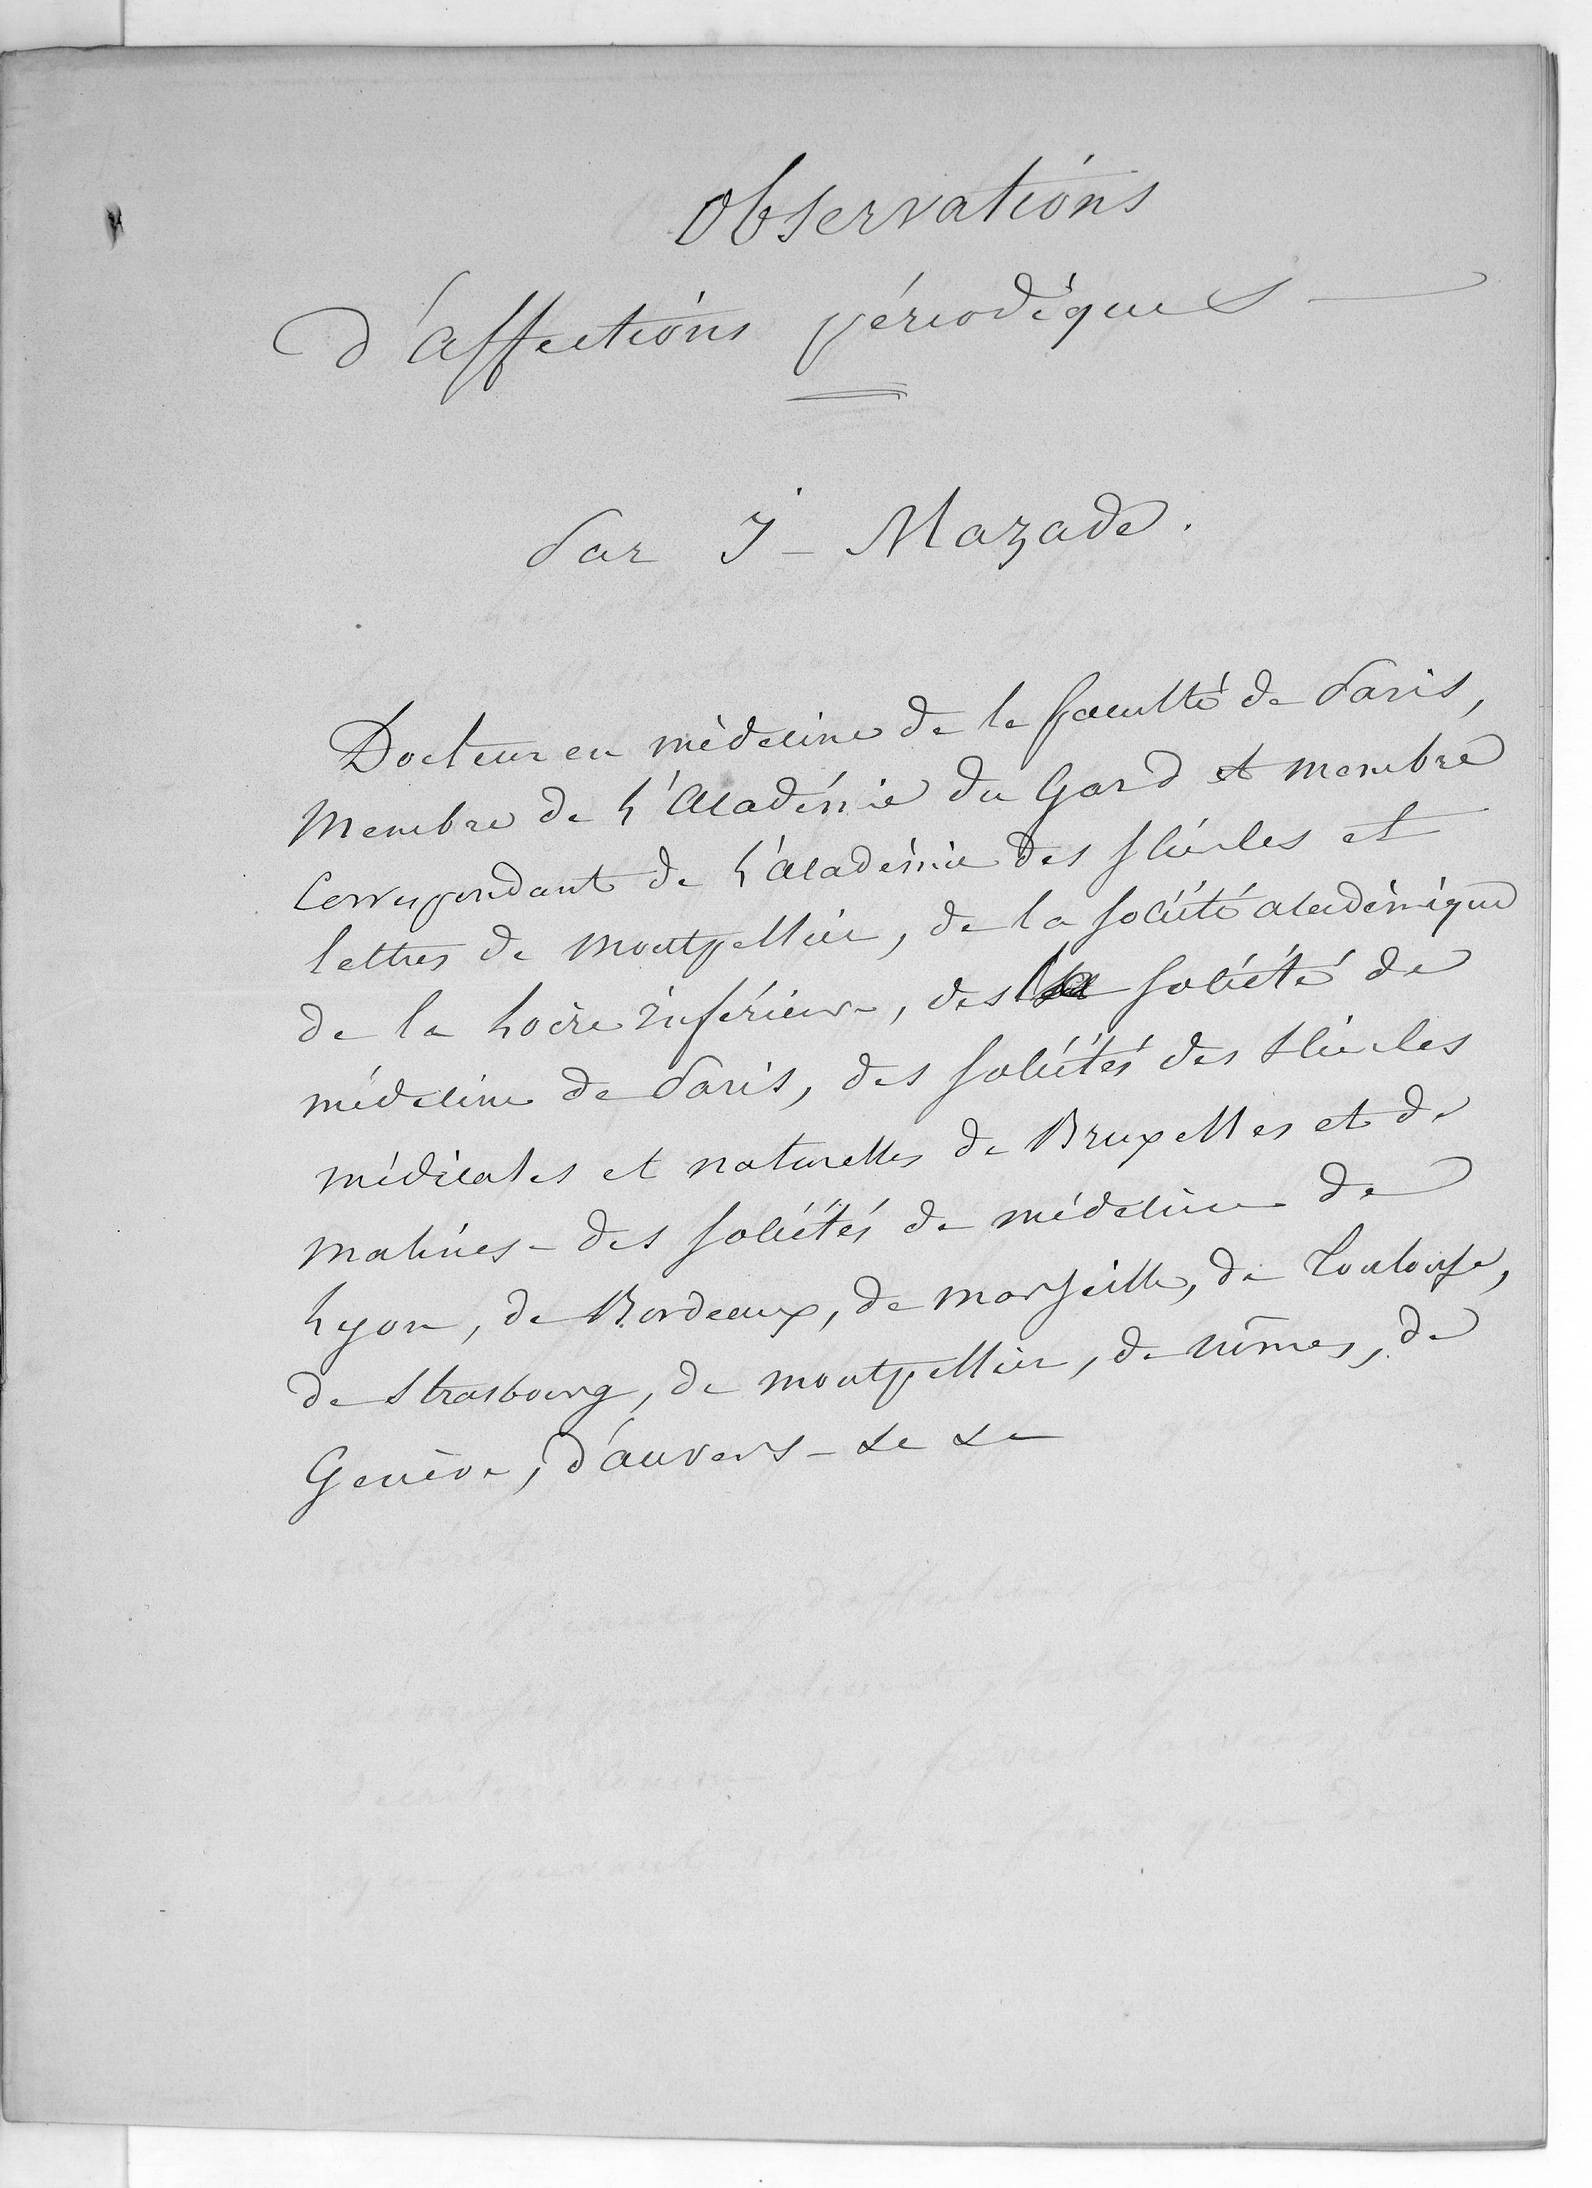 Observations
d'affections périodiques
Par J - Mazade.
Docteur en médecine de la faculté de Paris,
Membre de l'Académie du Gard et membre
Correspondant de l'académie des sciences et
lettres de montpellier, de la société académique
de la Loire inférieure, des société de
médecine de Paris, des sociétés des sciences
médicales et naturelles de Bruxelles et de
malines - des sociétés de médecine de
Lyon, de Bordeaux, de marseille, de Toulouse,
de strasbourg, de montpellier, de nîmes, de
Genève, d'anvers - &c &c